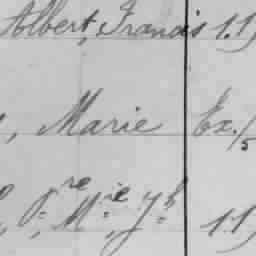 Albert, Francis 1.1
, Marie Ex./5
P.re M.ie J.h 11